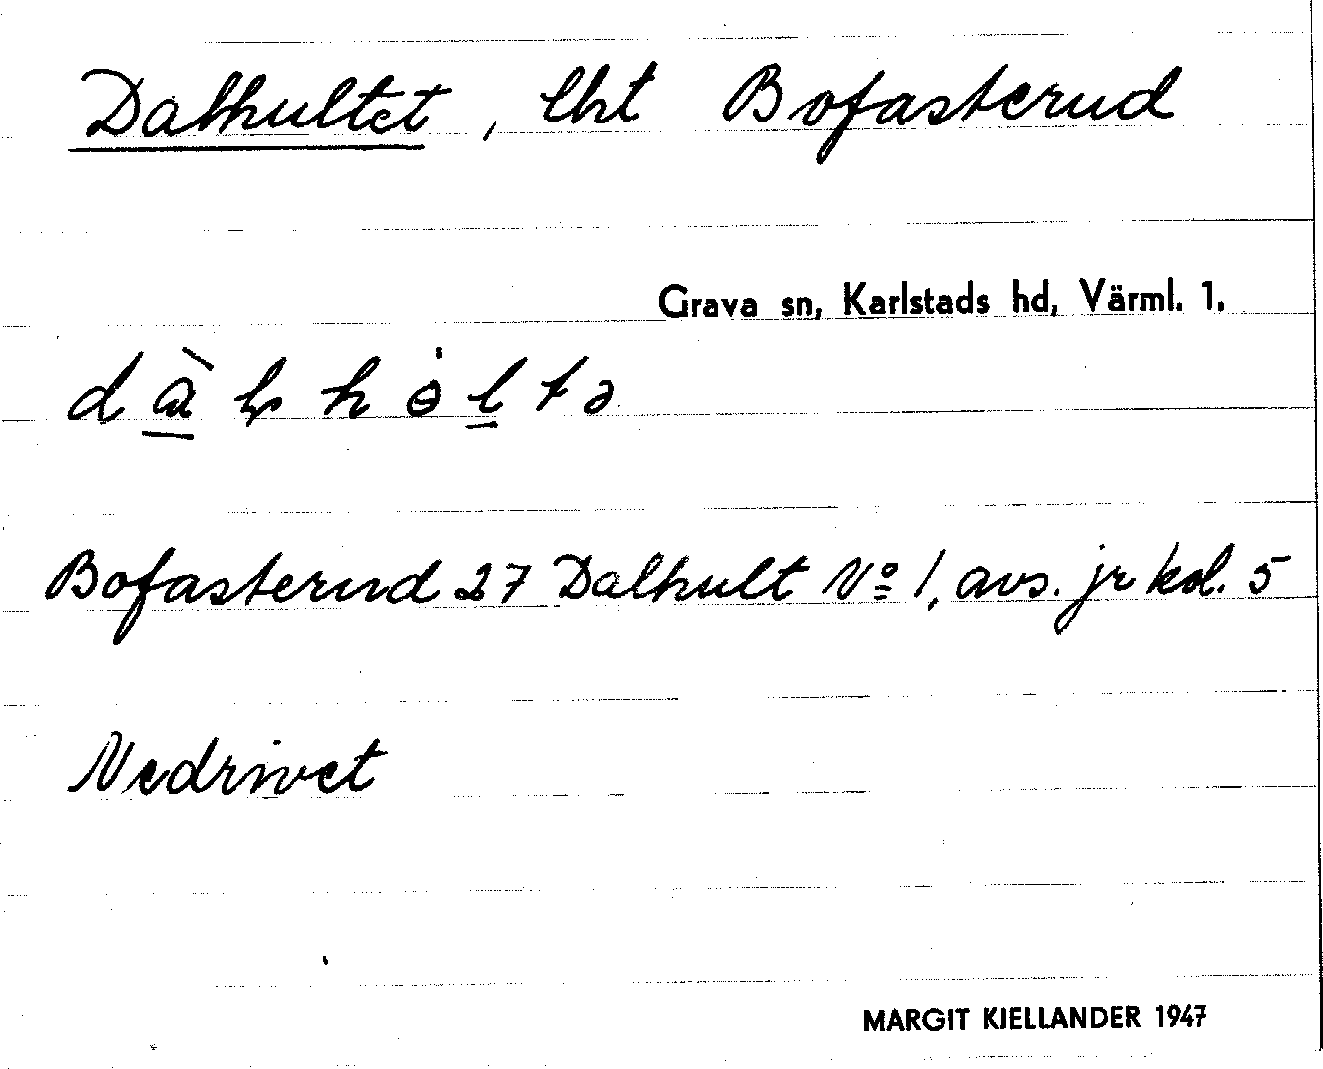 Dalhultet, lht Bofasterud
Grava sn, Karlstads hd, Värml. 1.
Bofasterud 27 Dalhult Nº 1, avs. jr kol. 5
Nedrivet
MARGIT KJELLANDER 1947